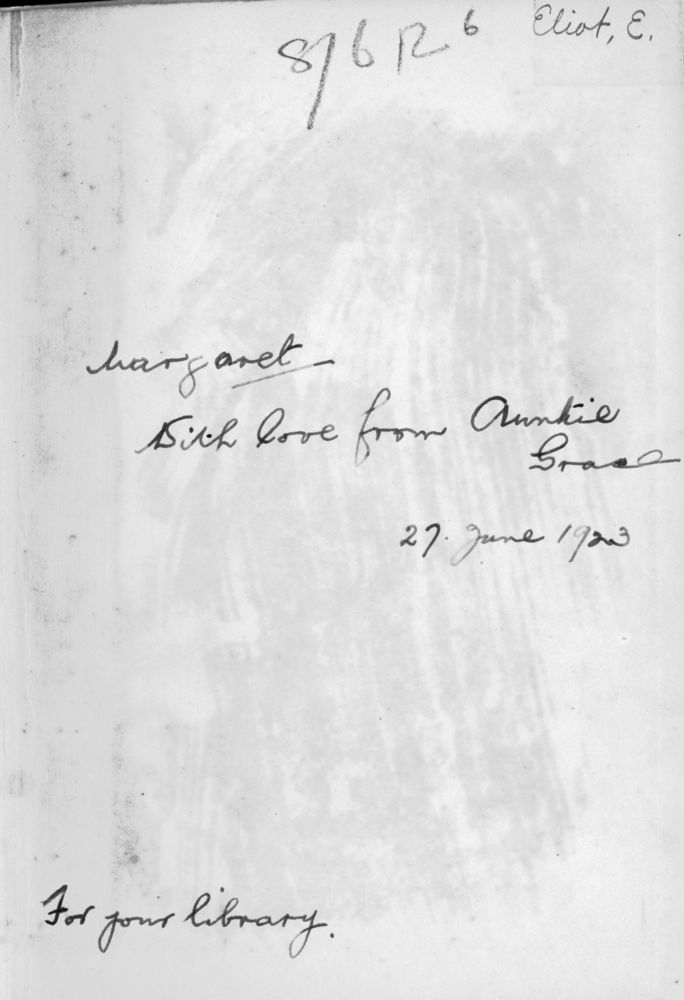 Eliot, E.
8/6 R 6
Margaret
With love from Auntie
Grace
27. June 1923
For your library.